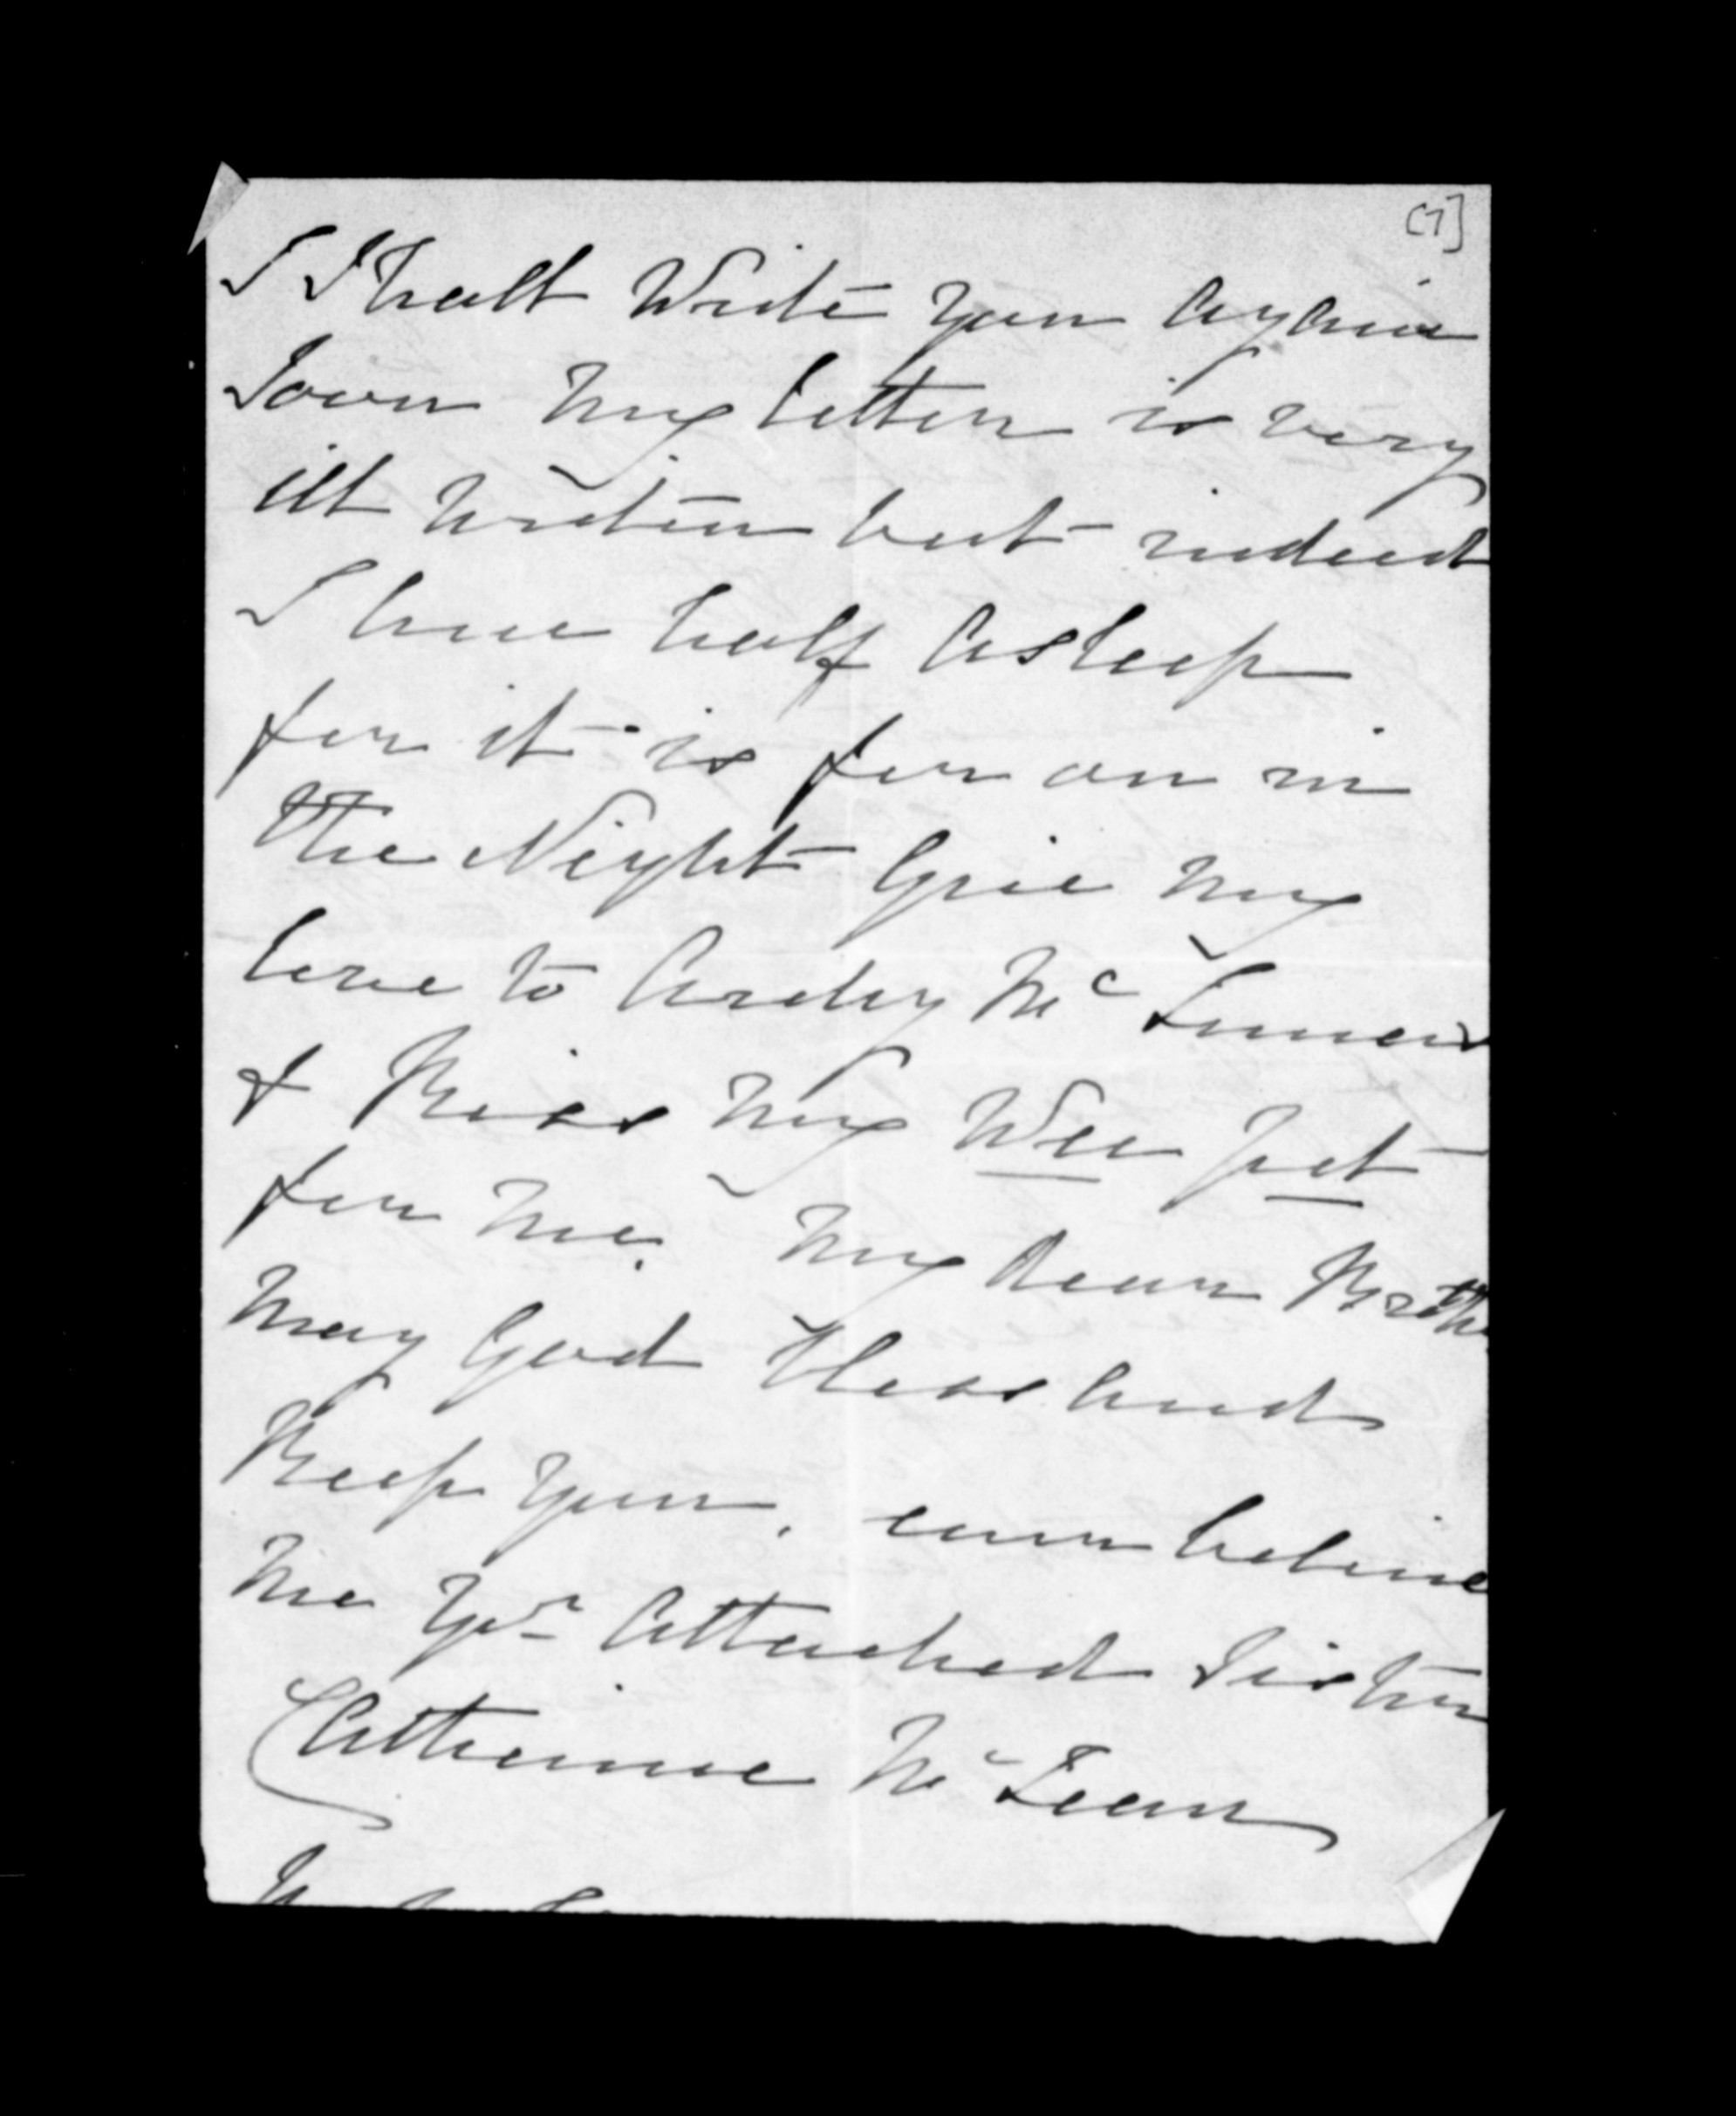 [7]
I Shall Write you Again
Soon my letter is very
ill writen but indeed
I have half Asleep
for it is far on in
the Night Give my
love to Archy Mc Innes
& Kiss my Wee pet
for me. my dear Brother
may God bless and
Keep you. ever believe
me Yr Attached Sister
Catherine Mc Lean